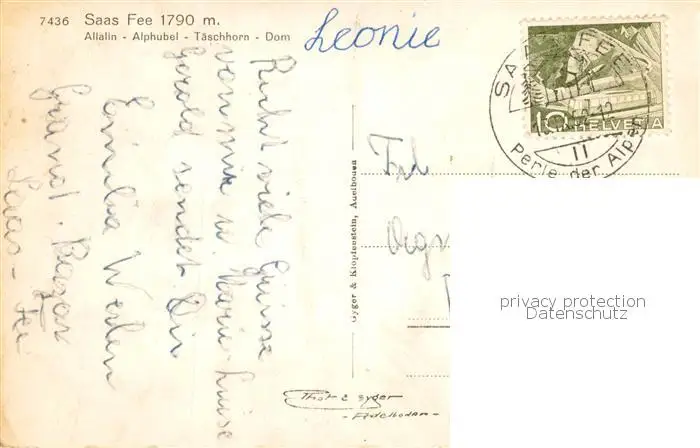 7436 Saas Fee 1790 m.
Allalin - Alphubel - Täschhorn - Dom
Leonie
Recht viele Grüsse
von mir u. Marie-Luise
Gerold sendet Dir
Emilia Werlen
Grand. Bazar
Saas-Fee
Gyger & Klopfenstein, Adelboden
SAAS-FEE
Perle der Alpen
II
10 HELVETIA
Frl
Phot E Gyger
- Adelboden -
privacy protection
Datenschutz